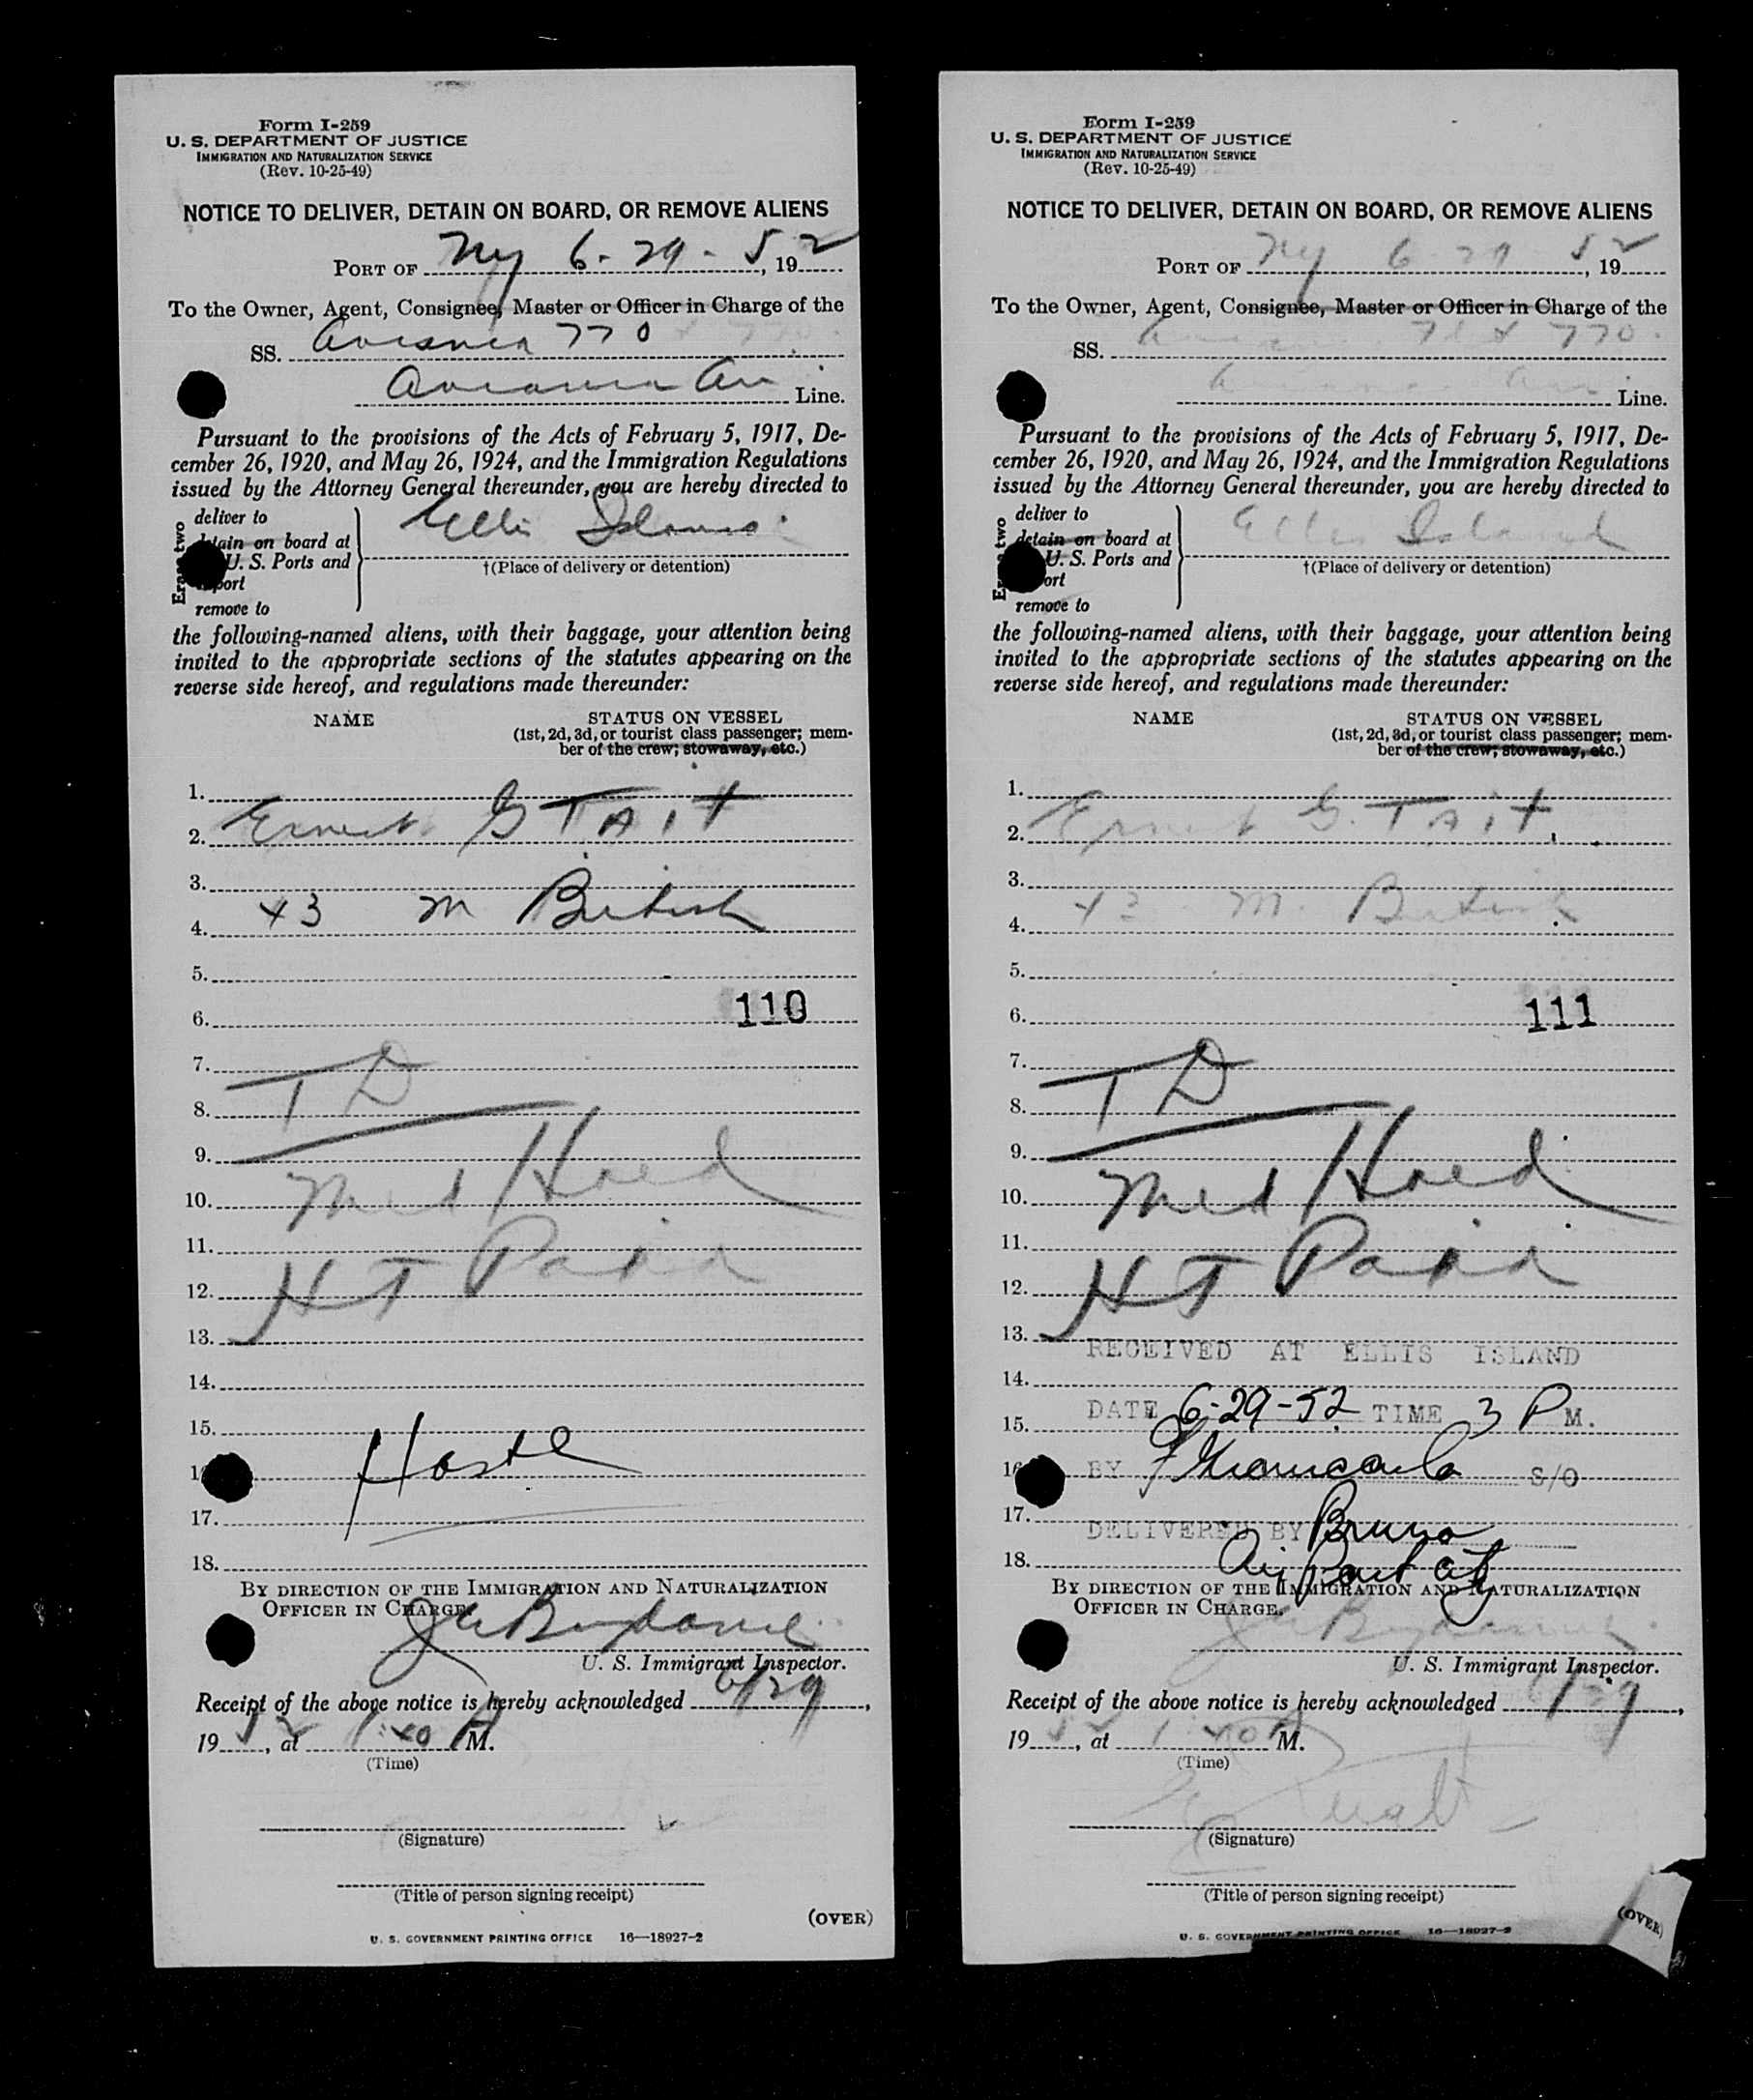 Form I-259
U. S. DEPARTMENT OF JUSTICE
IMMIGRATION AND NATURALIZATION SERVICE
(Rev. 10-25-49)
NOTICE TO DELIVER, DETAIN ON BOARD, OR REMOVE ALIENS
PORT OF Ny 6-29-52, 19
To the Owner, Agent, Consignee, Master or Officer in Charge of the
SS. 770
Line.
Pursuant to the provisions of the Acts of February 5, 1917, De-
cember 26, 1920, and May 26, 1924, and the Immigration Regulations
issued by the Attorney General thereunder, you are hereby directed to
deliver to
on board at
U. S. Ports and
remove to
Ellis Island
†(Place of delivery or detention)
the following-named aliens, with their baggage, your attention being
invited to the appropriate sections of the statutes appearing on the
reverse side hereof, and regulations made thereunder:
NAME STATUS ON VESSEL
(1st, 2d, 3d, or tourist class passenger; mem-
ber of the crew; stowaway, etc.)
1.
2. Ernest G TAit
3.
4. 43 M British
5.
6. 110
7.
8. T D
9.
10. Med
11.
12. HT Paid
13.
14.
15.
17.
18.
BY DIRECTION OF THE IMMIGRATION AND NATURALIZATION
OFFICER IN CHARGE.
U. S. Immigrant Inspector.
Receipt of the above notice is hereby acknowledged 6/29,
19 52, at 1:40 M.
(Time)
(Signature)
(Title of person signing receipt)
(OVER)
U. S. GOVERNMENT PRINTING OFFICE 16—18927-2
Form I-259
U. S. DEPARTMENT OF JUSTICE
IMMIGRATION AND NATURALIZATION SERVICE
(Rev. 10-25-49)
NOTICE TO DELIVER, DETAIN ON BOARD, OR REMOVE ALIENS
PORT OF Ny 6 29 52, 19
To the Owner, Agent, Consignee, Master or Officer in Charge of the
SS. 770
Line.
Pursuant to the provisions of the Acts of February 5, 1917, De-
cember 26, 1920, and May 26, 1924, and the Immigration Regulations
issued by the Attorney General thereunder, you are hereby directed to
deliver to
detain on board at
U. S. Ports and
remove to
Ellis Island
†(Place of delivery or detention)
the following-named aliens, with their baggage, your attention being
invited to the appropriate sections of the statutes appearing on the
reverse side hereof, and regulations made thereunder:
NAME STATUS ON VESSEL
(1st, 2d, 3d, or tourist class passenger; mem-
ber of the crew; stowaway, etc.)
1.
2. Ernest G. TAit
3.
4. 43 M. British
5.
6. 111
7.
8. T D
9.
10. Med
11.
12. HT Paid
13.
RECEIVED AT ELLIS ISLAND
14.
15. DATE 6-29-52 TIME 3 P M.
BY S/O
17. DELIVERED BY Bruno
18. Air Port
BY DIRECTION OF THE IMMIGRATION AND NATURALIZATION
OFFICER IN CHARGE.
U. S. Immigrant Inspector.
Receipt of the above notice is hereby acknowledged 6/29,
19 52, at 1 40 M.
(Time)
(Signature)
(Title of person signing receipt)
(OVER)
U. S. GOVERNMENT PRINTING OFFICE 16—18927-2